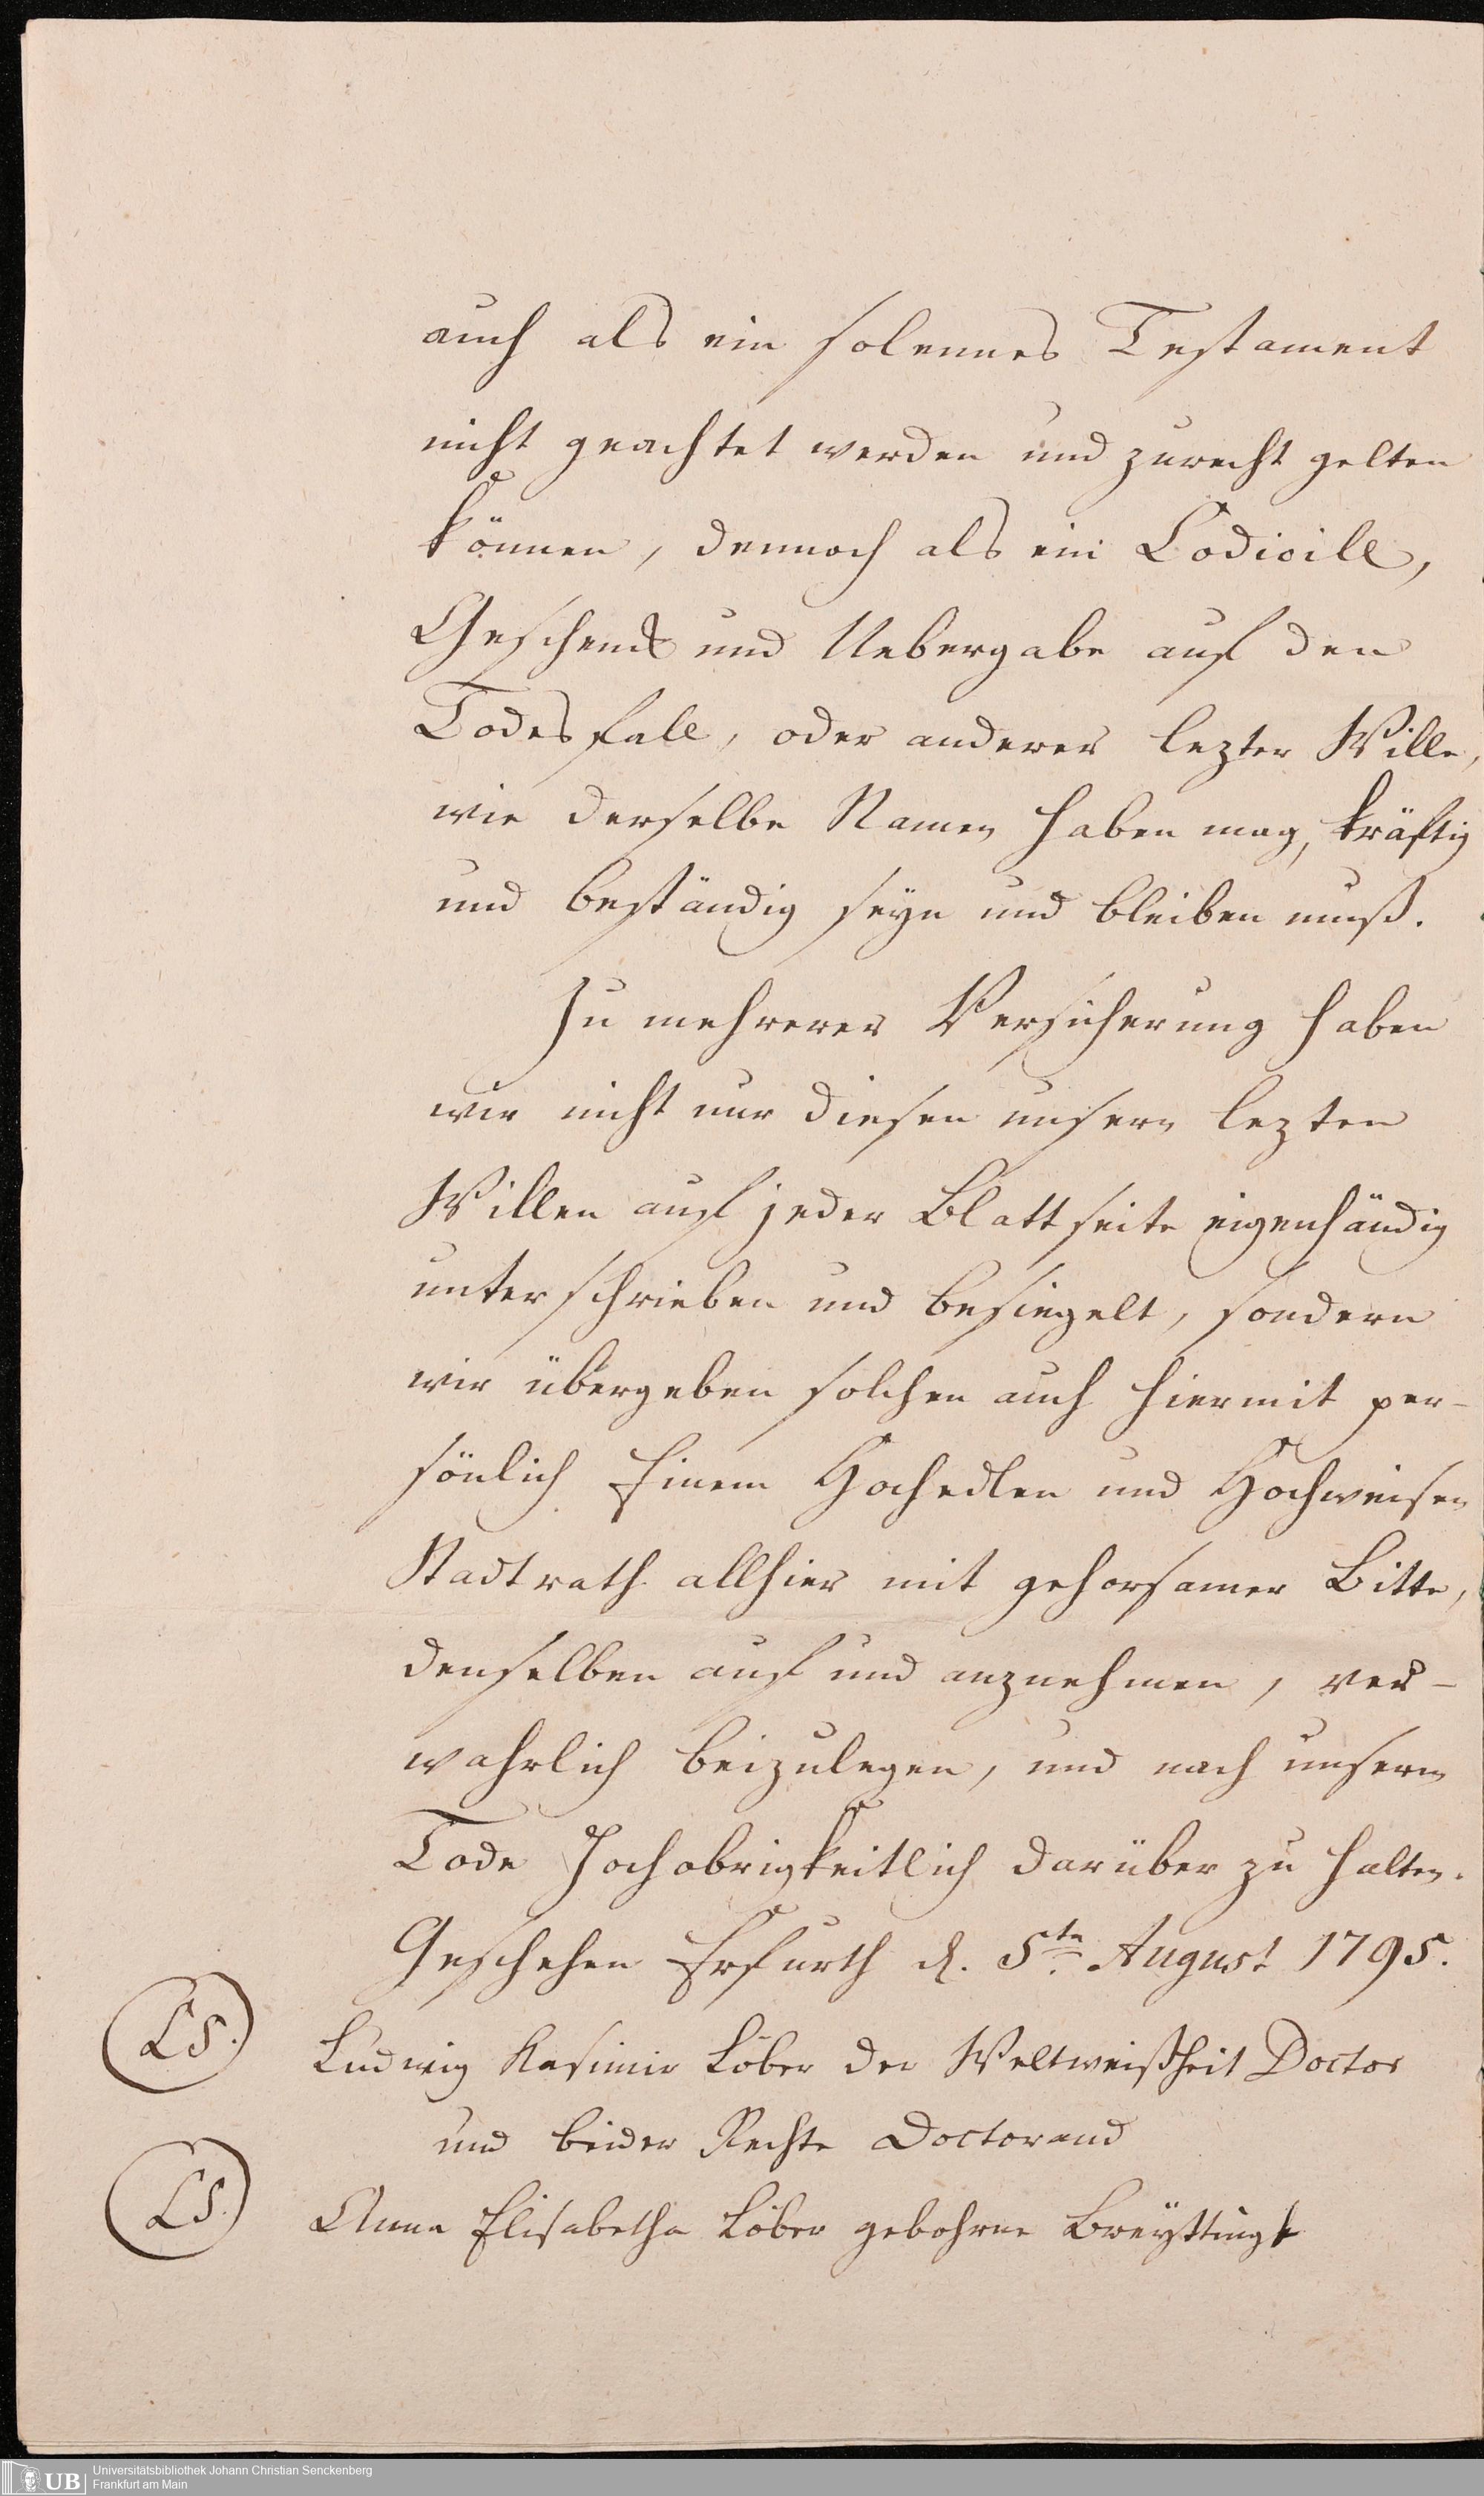 auch als ein solennes Testament
nicht geachtet werden und zurecht gelten
können, dennoch als ein Codicill,
Geschenk und Uebergabe auf den
Todesfall, oder anderer lezter Wille,
wie derselbe Namen haben mag, kräftig
und beständig seyn und bleiben muß.
Zu mehrerer Versicherung haben
wir nicht nur diesen unsern lezten
Willen auf jeder Blattseite eigenhändig
unterschrieben und besiegelt, sondern
wir übergeben solchen auch hiermit per-
sönlich Einem Hochedlen und Hochweisen
Stadtrath allhier mit gehorsamer Bitte,
denselben auf und anzunehmen, ver-
wahrlich beizulegen, und nach unserm
Tode hochobrigkeitlich darüber zu halten.
Geschehen Erfurth d. 5te August 1795.
LS. Ludwig Kasimir Löber der Weltweißheit Doctor
und beider Rechte Doctorand
LS. Anna Elisabetha Löber gebohrne
Universitätsbibliothek Johann Christian Senckenberg
UB Frankfurt am Main